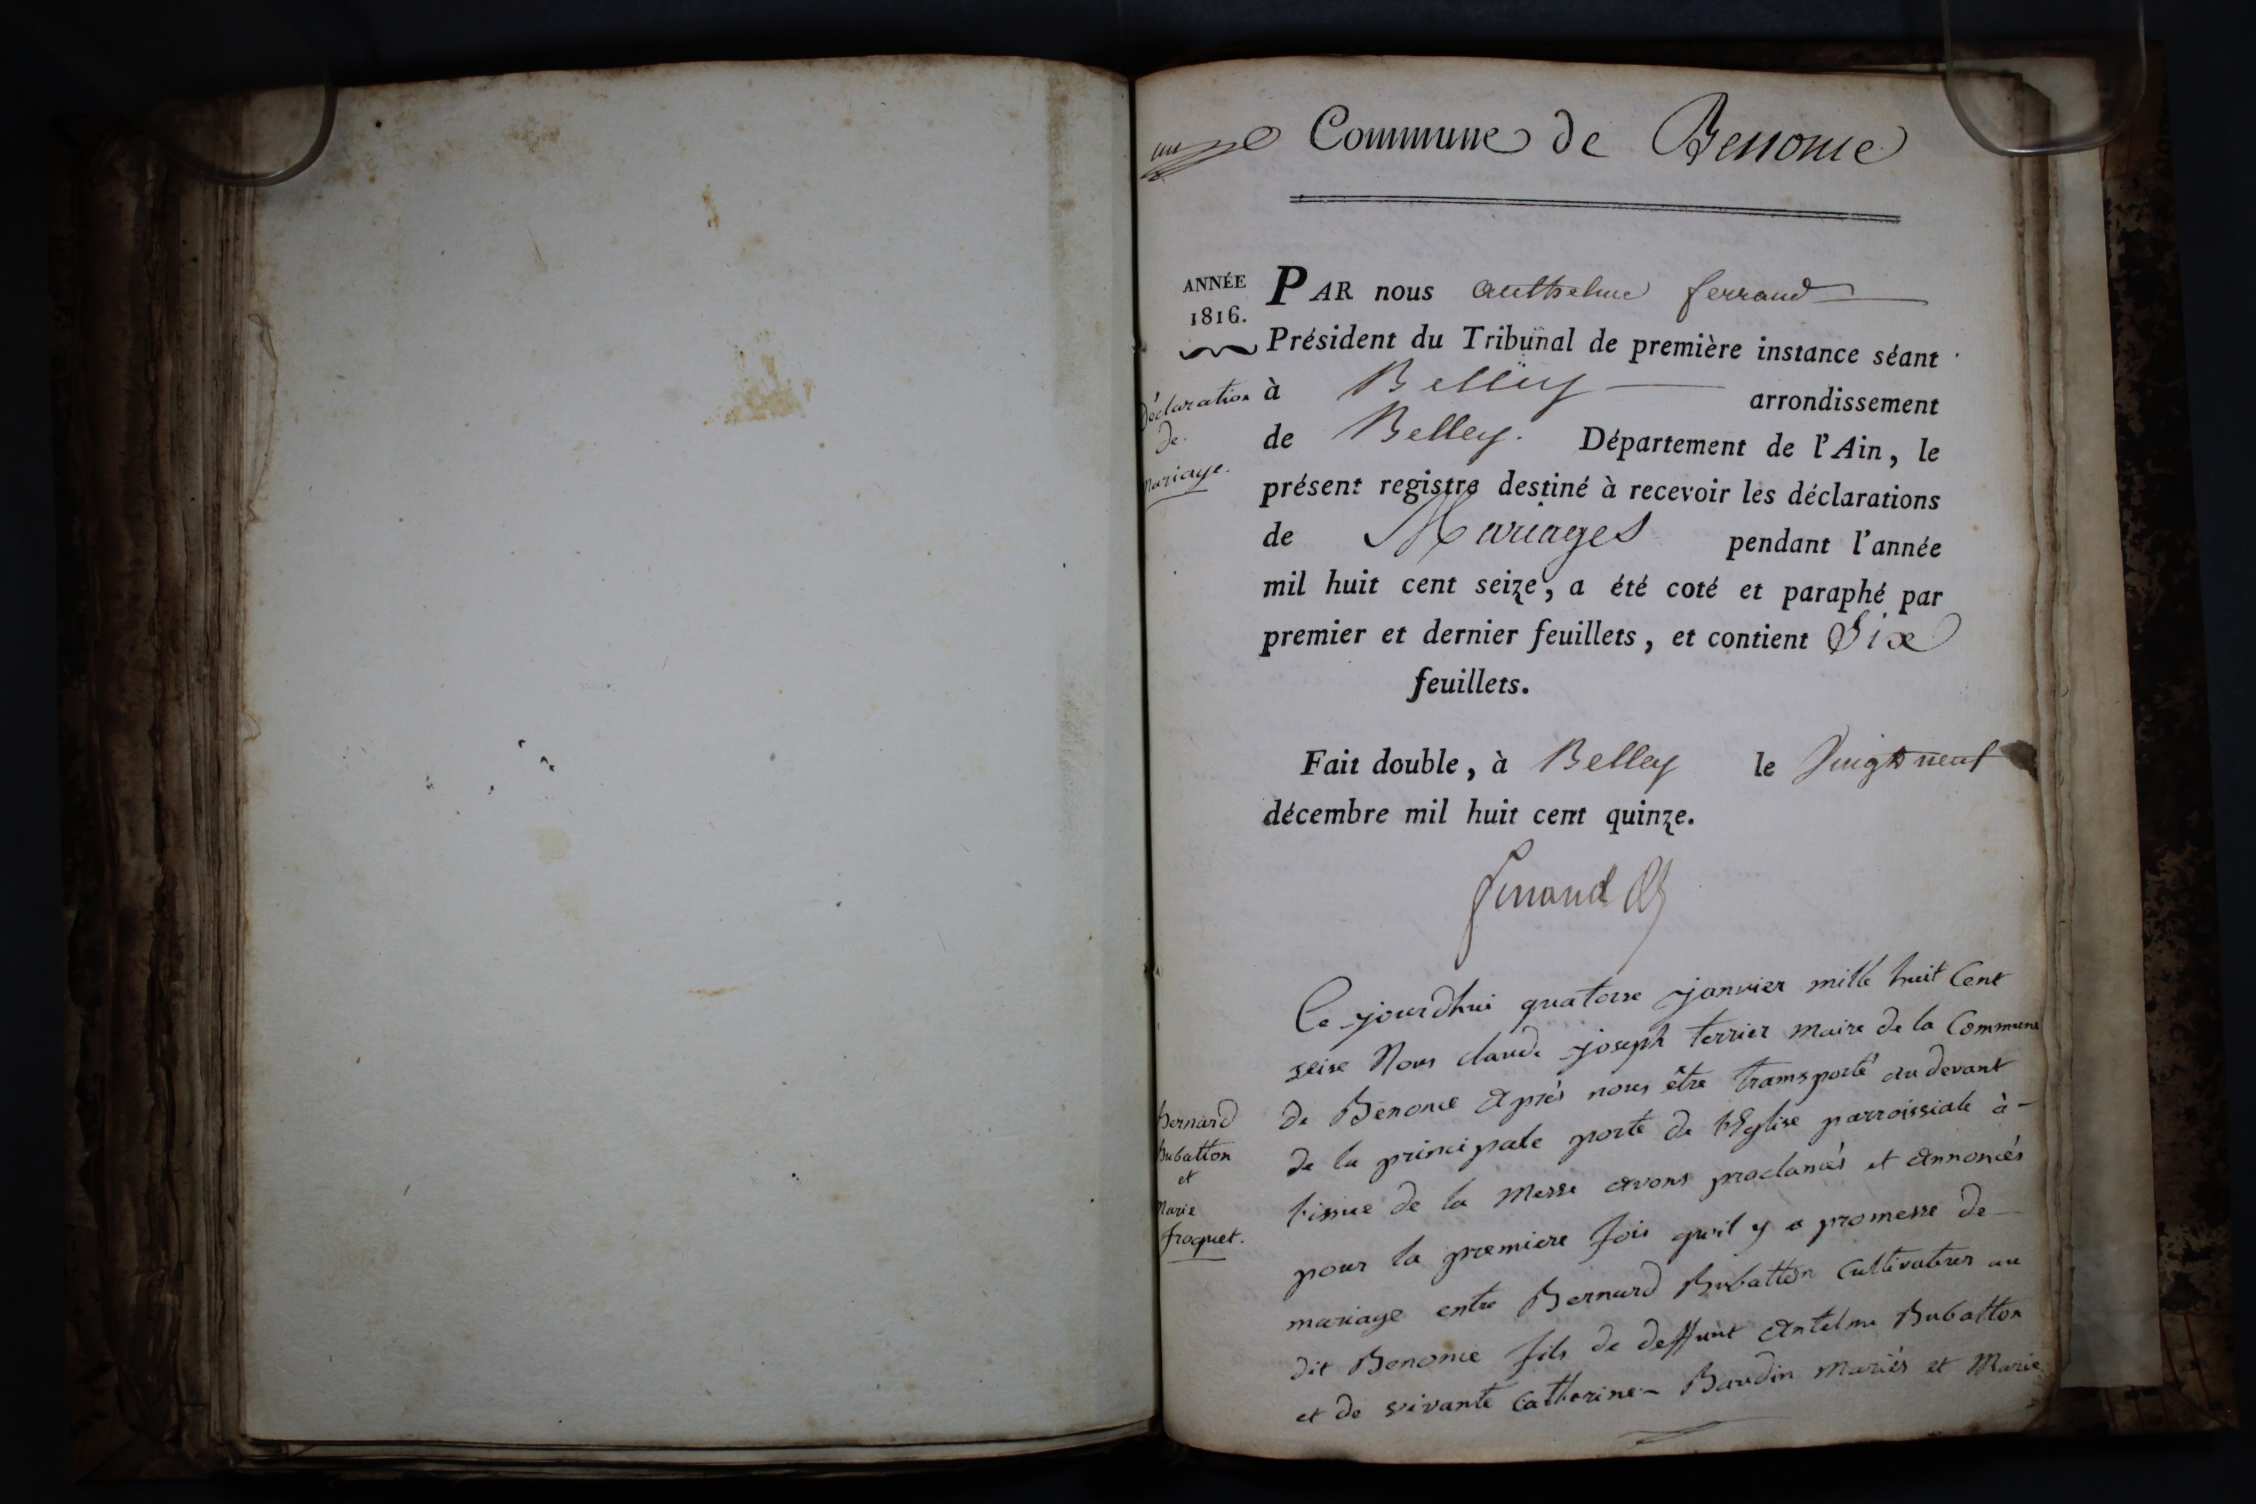 un
Commune de Benonce
ANNÉE
1816.
Déclaration
de
Mariage.
PAR nous anthelme ferrand
Président du Tribunal de première instance séant
à Belley arrondissement
de Belley. Département de l'Ain, le
présent registre destiné à recevoir les déclarations
de Mariages pendant l'année
mil huit cent seize, a été coté et paraphé par
premier et dernier feuillets, et contient Six
feuillets.
Fait double, à Belley le vingt neuf
décembre mil huit cent quinze.
ferrand
Bernard
Bubatton
et
Marie
froquet.
Ce jourdhui quatorse janvier mille huit Cent
seise Nous claude joseph terrier maire de la Commune
de Benonce après nous être transporté au devant
de la principale porte de lEglise parroissiale à
lissue de la Messe avons proclamés et annoncés
pour la premiere fois qu'il y a promesse de
mariage entre Bernard Bubatton cultivateur au
dit Benonce fils de deffunt antelme Bubatton
et de vivante Catherine Baudin mariés et Marie